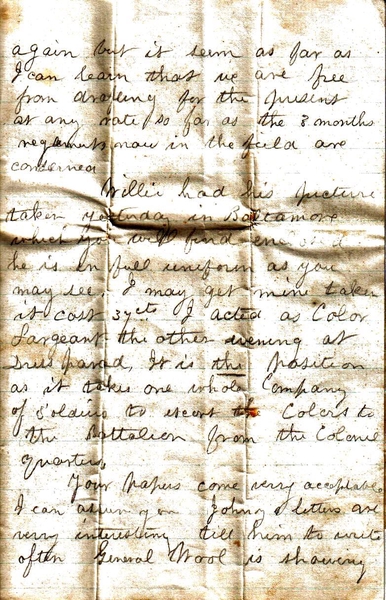 again but it seem as far as
I can learn that we are free
from drafting for the present
at any rate so far as the 3 months
regaments now in the field are
conserned
Willie had his picture
taken yesturday in Baltamore
which you will find
he is in full uniform as you
may see, I may get mine taken
it cost 37cts I acted as Color
Sargeant the other evening at
Dress parad, It is the Position
as it takes one whole Company
of Soldiers to escort the Colors to
the Battalion from the Colonel
quarters
Your Papers come very acceptable
I can assure you Johny s letters are
very interesting till him to write
often General Wool is showing